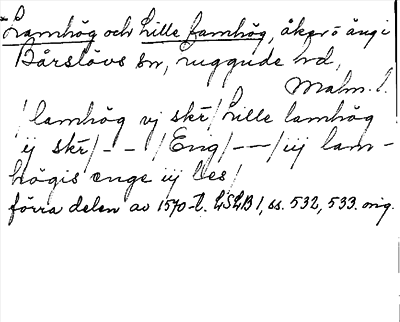 Lamhög och Lille Lamhög, åker o äng i
Bårslövs sn, ruggude hd,
Malm. l.
/ lamhög vj skr / Lille lamhög
ij skr / - - / Eng / - - / iij lam-
högis enge iij les /
förra delen av 1570-t. LSLB 1, ss. 532, 533. orig.